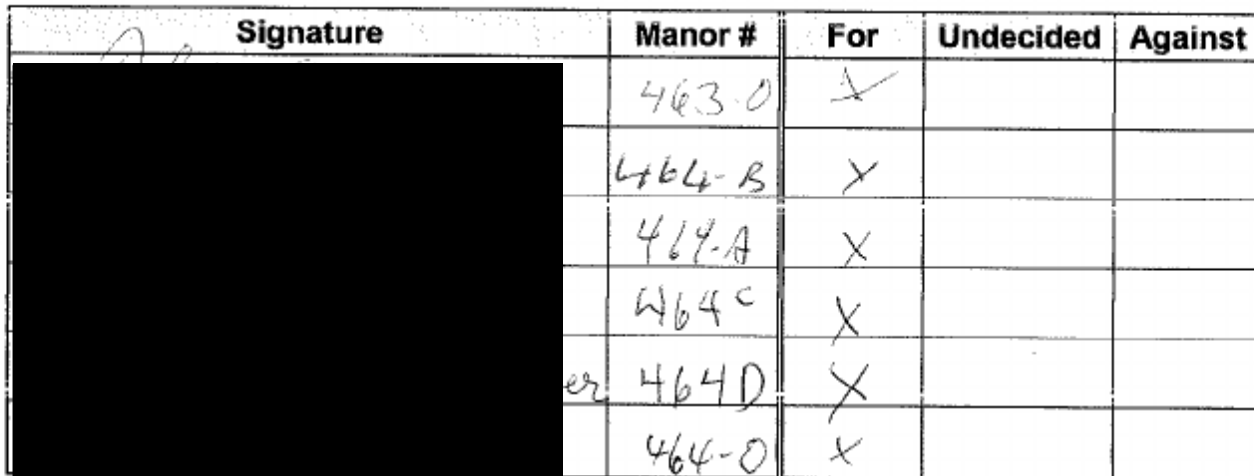 Signature Manor # For Undecided Against
463-O X
464-B X
464-A X
464C X
er 464D X
464-O X